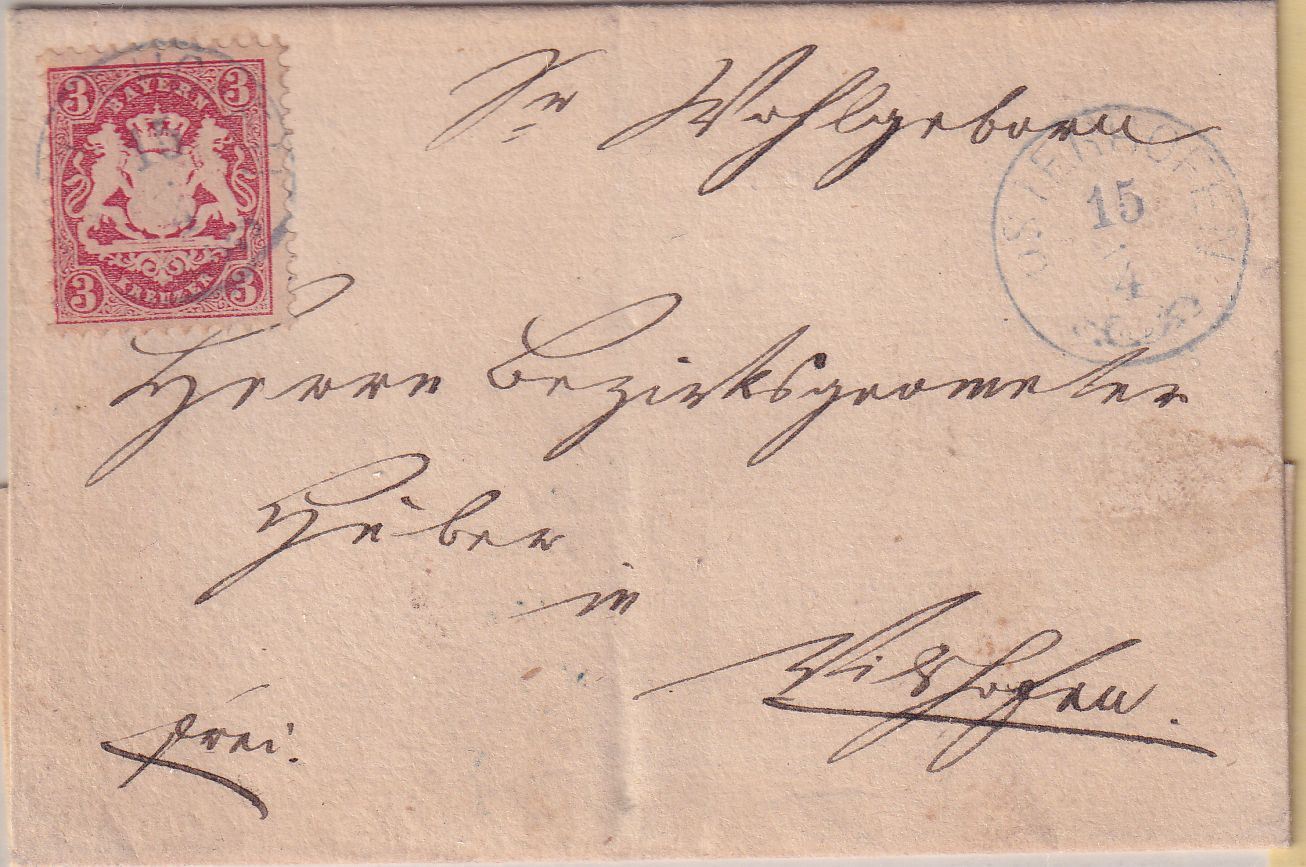 3 BAYERN 3
15
3 KREUZER 3
OSTERHOFEN
15
4
Sr Wohlgeborn
Herrn Bezirksgeometer
Huber
in
Vilshofen.
frei.